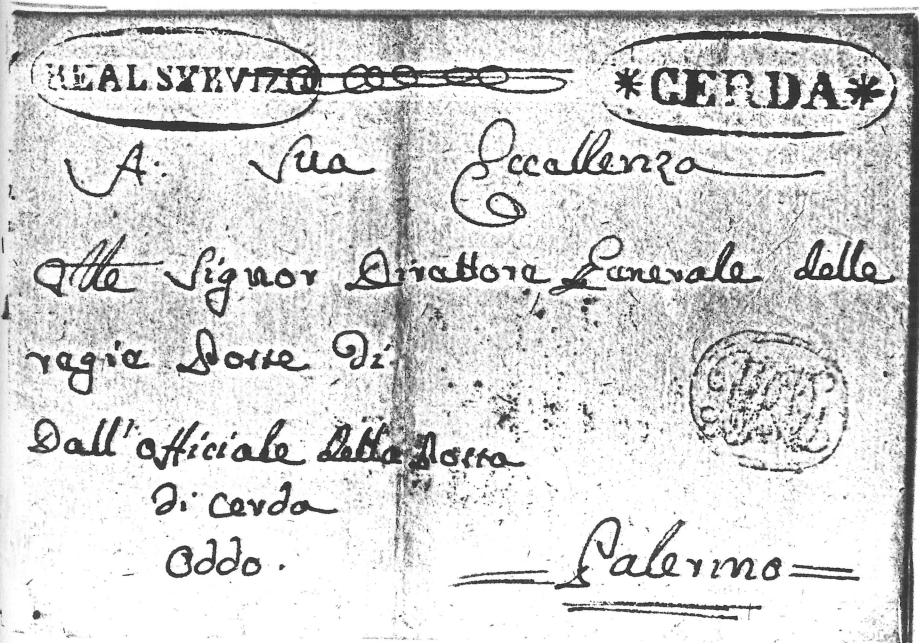 REAL SERVIZIO
*CERDA*
A: Sua Eccellenza
Ill.e Signor Direttore Generale delle
regie Poste di
Dall'officiale della Posta
di cerda
Oddo.
Palermo